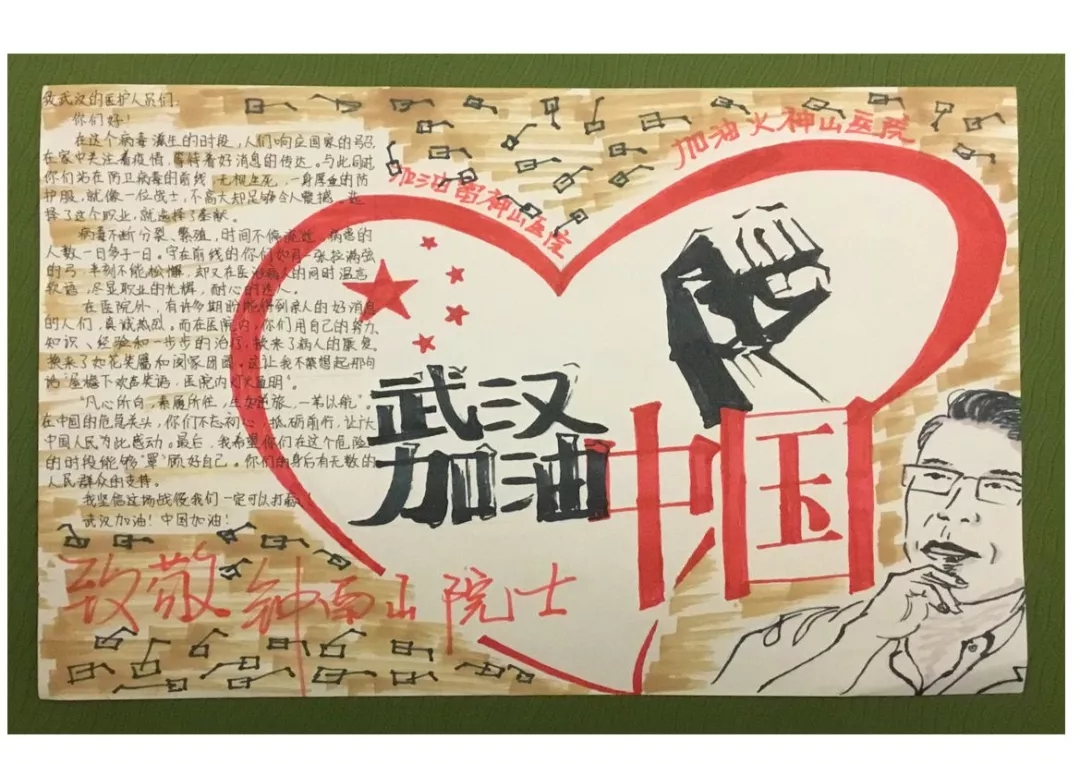 致武汉的医护人员们:
你们好!
在这个病毒滋生的时段,人们响应国家的号召
在家中关注着疫情,等待着好消息的传达。与此同时
你们站在防卫病毒的前线,无惧生死,一身厚重的防
护服,就像一位战士,不高大却足够令人震撼。选
择了这个职业,就选择了奉献。
病毒不断分裂、繁殖,时间不停流逝,病患的
人数一日多于一日。守在前线的你们如同一张拉满弦
的弓,半刻不能松懈,却又在医治病人的同时温言
软语,尽显职业的光辉,耐心的迷人。
在医院外,有许多期盼能得到亲人的好消息
的人们,真诚热烈。而在医院内,你们用自己的努力、
知识、经验和一步步的治疗,换来了病人的康复,
换来了如花笑靥和阖家团圆。这让我不禁想起那句
话“屋檐下欢声笑语,医院内灯火通明”。
“凡心所向,素履所往,生如逆旅,一苇以航”
在中国的危急关头,你们不忘初心,砥砺前行,让广大
中国人民为此感动。最后,我希望你们在这个危险
的时段能够“罩”顾好自己。你们的身后有无数的
人民群众的支持。
我坚信这场战役我们一定可以打赢!
武汉加油!中国加油!
加油雷神山医院
加油火神山医院
武汉
加油
中国
致敬钟南山院士